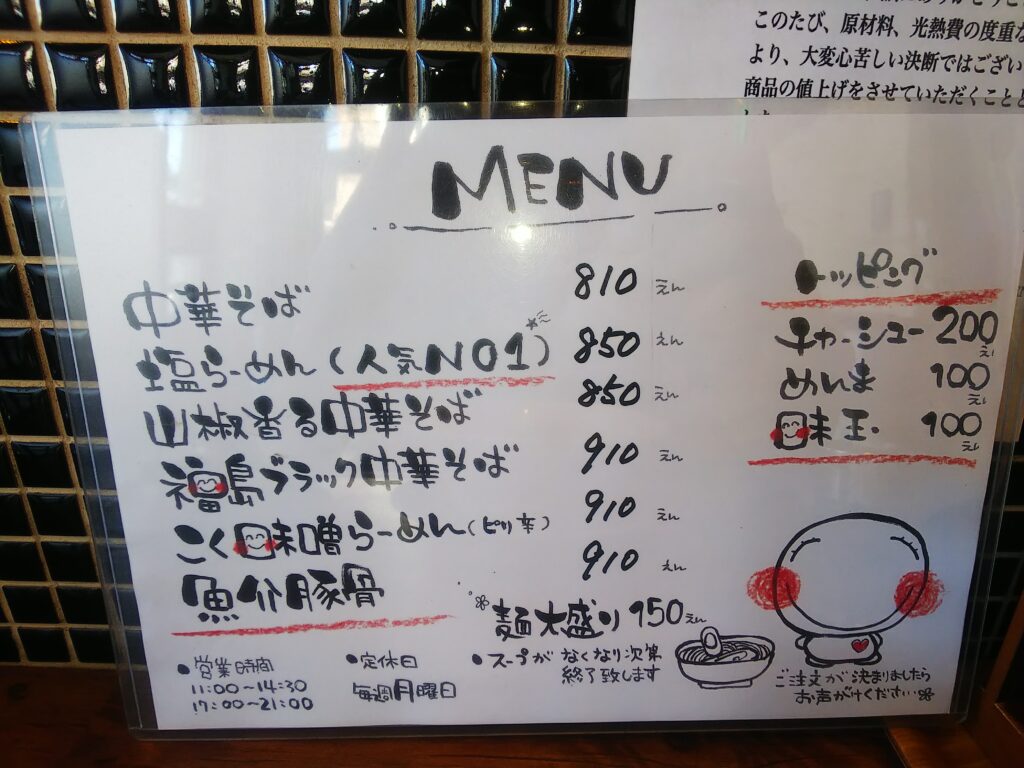 このたび、原材料、光熱費の度重な
より、大変心苦しい決断ではござい
商品の値上げをさせていただくことと
MENU
中華そば 810えん
塩らーめん(人気NO1) 850えん
山椒香る中華そば 850えん
福島ブラック中華そば 910えん
こく味噌らーめん(ピリ辛) 910えん
魚介豚骨 910えん
麺大盛り 150えん
トッピング
チャーシュー 200えん
めんま 100えん
味玉 100えん
●営業時間
11:00~14:30
17:00~21:00
●定休日
毎週月曜日
●スープがなくなり次第
終了致します
ご注文が決まりましたら
お声がけください